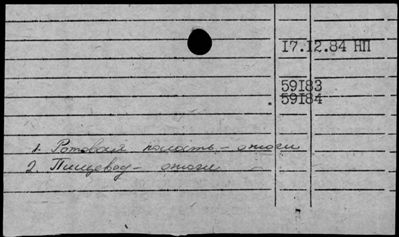 17.12.84 НП
59183
59184
1. Ротовая полость – ожоги
2. Пищевод – ожоги